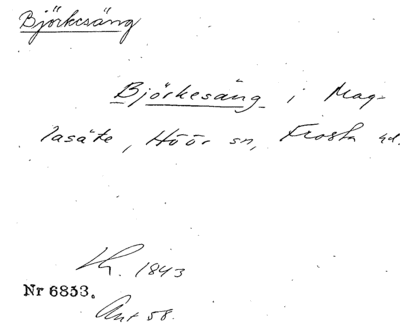 Björkesäng
Björkesäng i Mag-
lasäte, Höör sn, Frosta hd.
Lh. 1843
Nr 6833.
Ant 58.